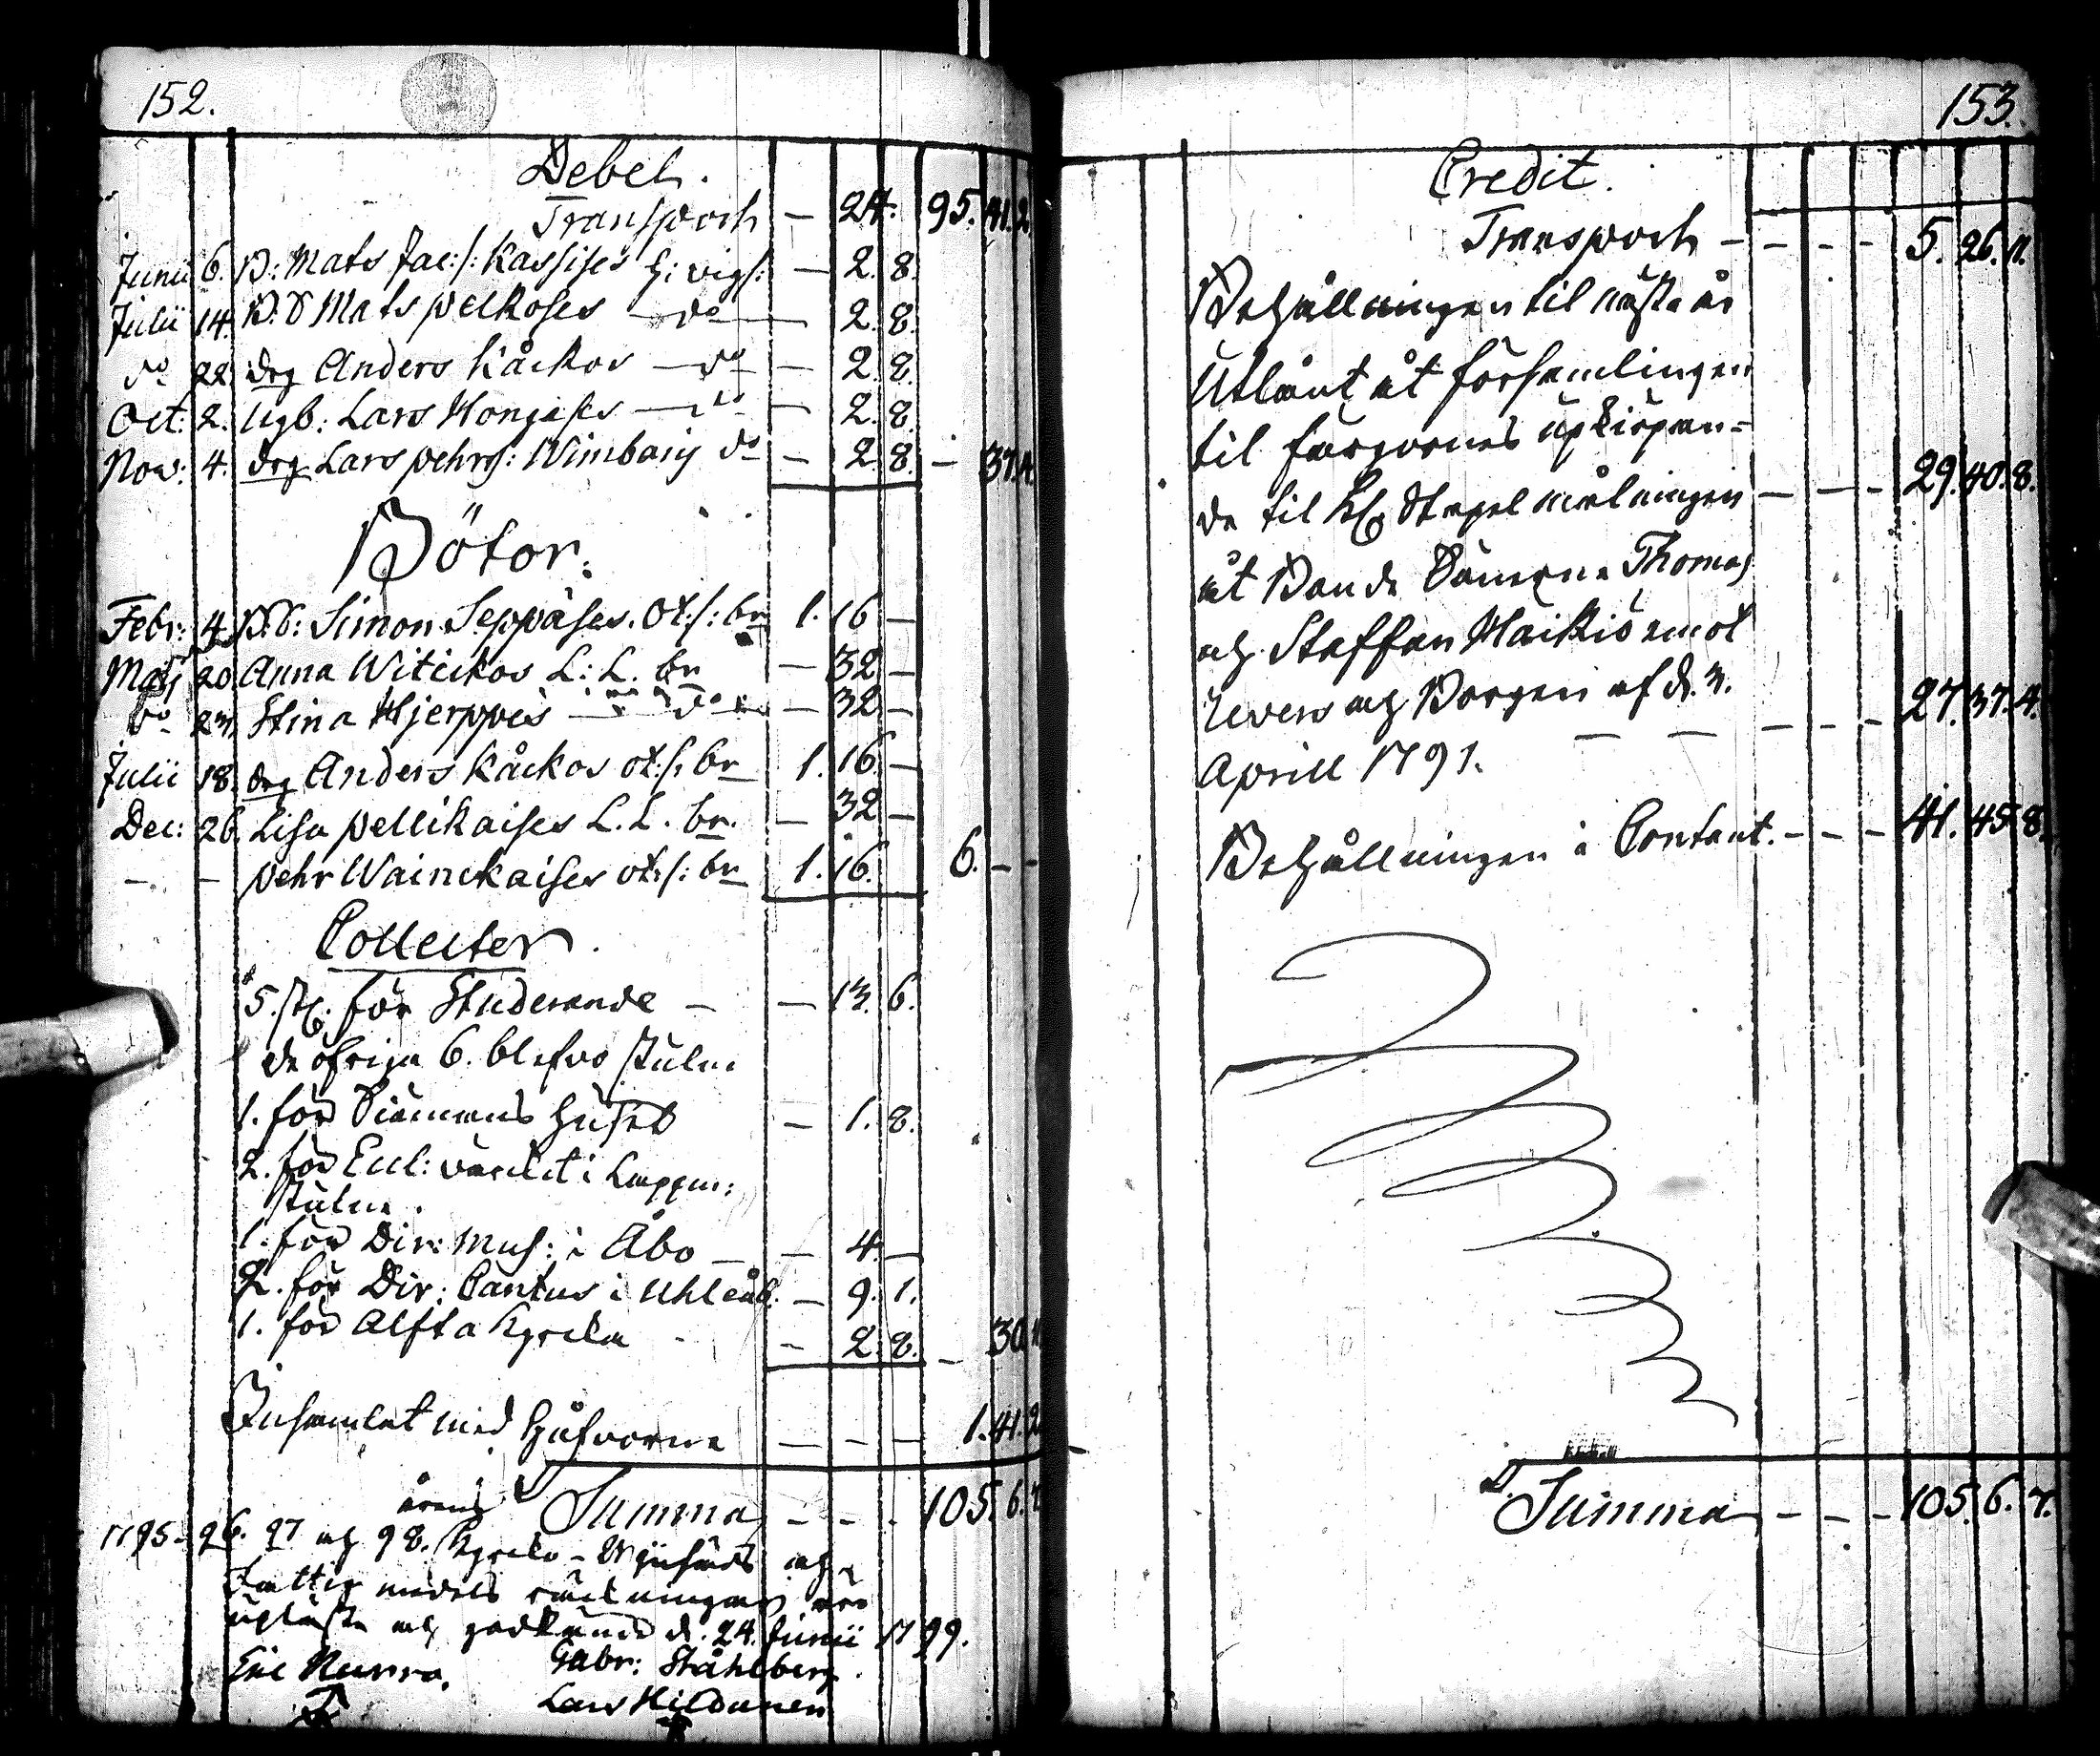 152.
Debet.
Transport — 24. 95. 41. 2.
Junii 6. B: Mats Jac:s: Kassises h: vigs: — 2. 8.
Julii 14. B. S Mats Pelkoses — do — 2. 8.
do 22. drg Anders Kåckos — do — 2. 8.
Oct: 2. Ugb: Lars Hongises — do — 2. 8.
Nov: 4. drg Lars Pehrs: Wimbarij do — 2. 8. — 37. 4.
Böter.
Febr: 4. B. S: Simon Seppäses. ot:s: br 1. 16 —
Maij 20. Anna Witickos L: L. br — 32 —
do 23. Stina Hjerppes — do — 32 —
Julii 18. drg Anders Kåckos ot:s: br 1. 16. —
Dec: 26. Lisa Pellikaises L. L. br. — 32 —
—. — Pehr Wainickaises ot:s: br 1. 16. 6. — —
Collecter.
5. st: för Studerande — — 13. 6.
de öfriga 6. blefvo stulne
1. för Siömans huset — 1. 8.
2. för Eccl: värcket i Lappm:
stulne.
1. för Dir: Mus: i Åbo — — 4. —
2. för Dir: Cantus i Uhleåb. — 9. 1.
1. för Alfta Kyrcka - — 2. 8. — 30.
Insamlat med Håfvorne — — — 1. 41. 2
Summa — — - 105. 6. 7.
årens
1795- 96. 97 och 98. Kyrcko- Wijnhäds och
Fattig medels räckningar äro
upläste och godkände d. 24. Junii 1799.
Eric Nurro. Gabr: Ståhlberg.
Lars Hildunen
153.
Credit.
Transport — — — — 5. 26. 11.
Behållningen til nästa år
Utlånt åt församlingen
til färgornes upkiöpan-
de til Kl: Stapel målningen — — - 29. 40. 8.
åt Bonde Sönerne Thomas
och Staffan Haikiö emot
Revers och Borgen af d. 3.
Aprill 1791. — — — — - 27. 37. 4.
Behållningen i Contant. - — — 41. 45. 8.
S. Summa — — — 105. 6. 7.